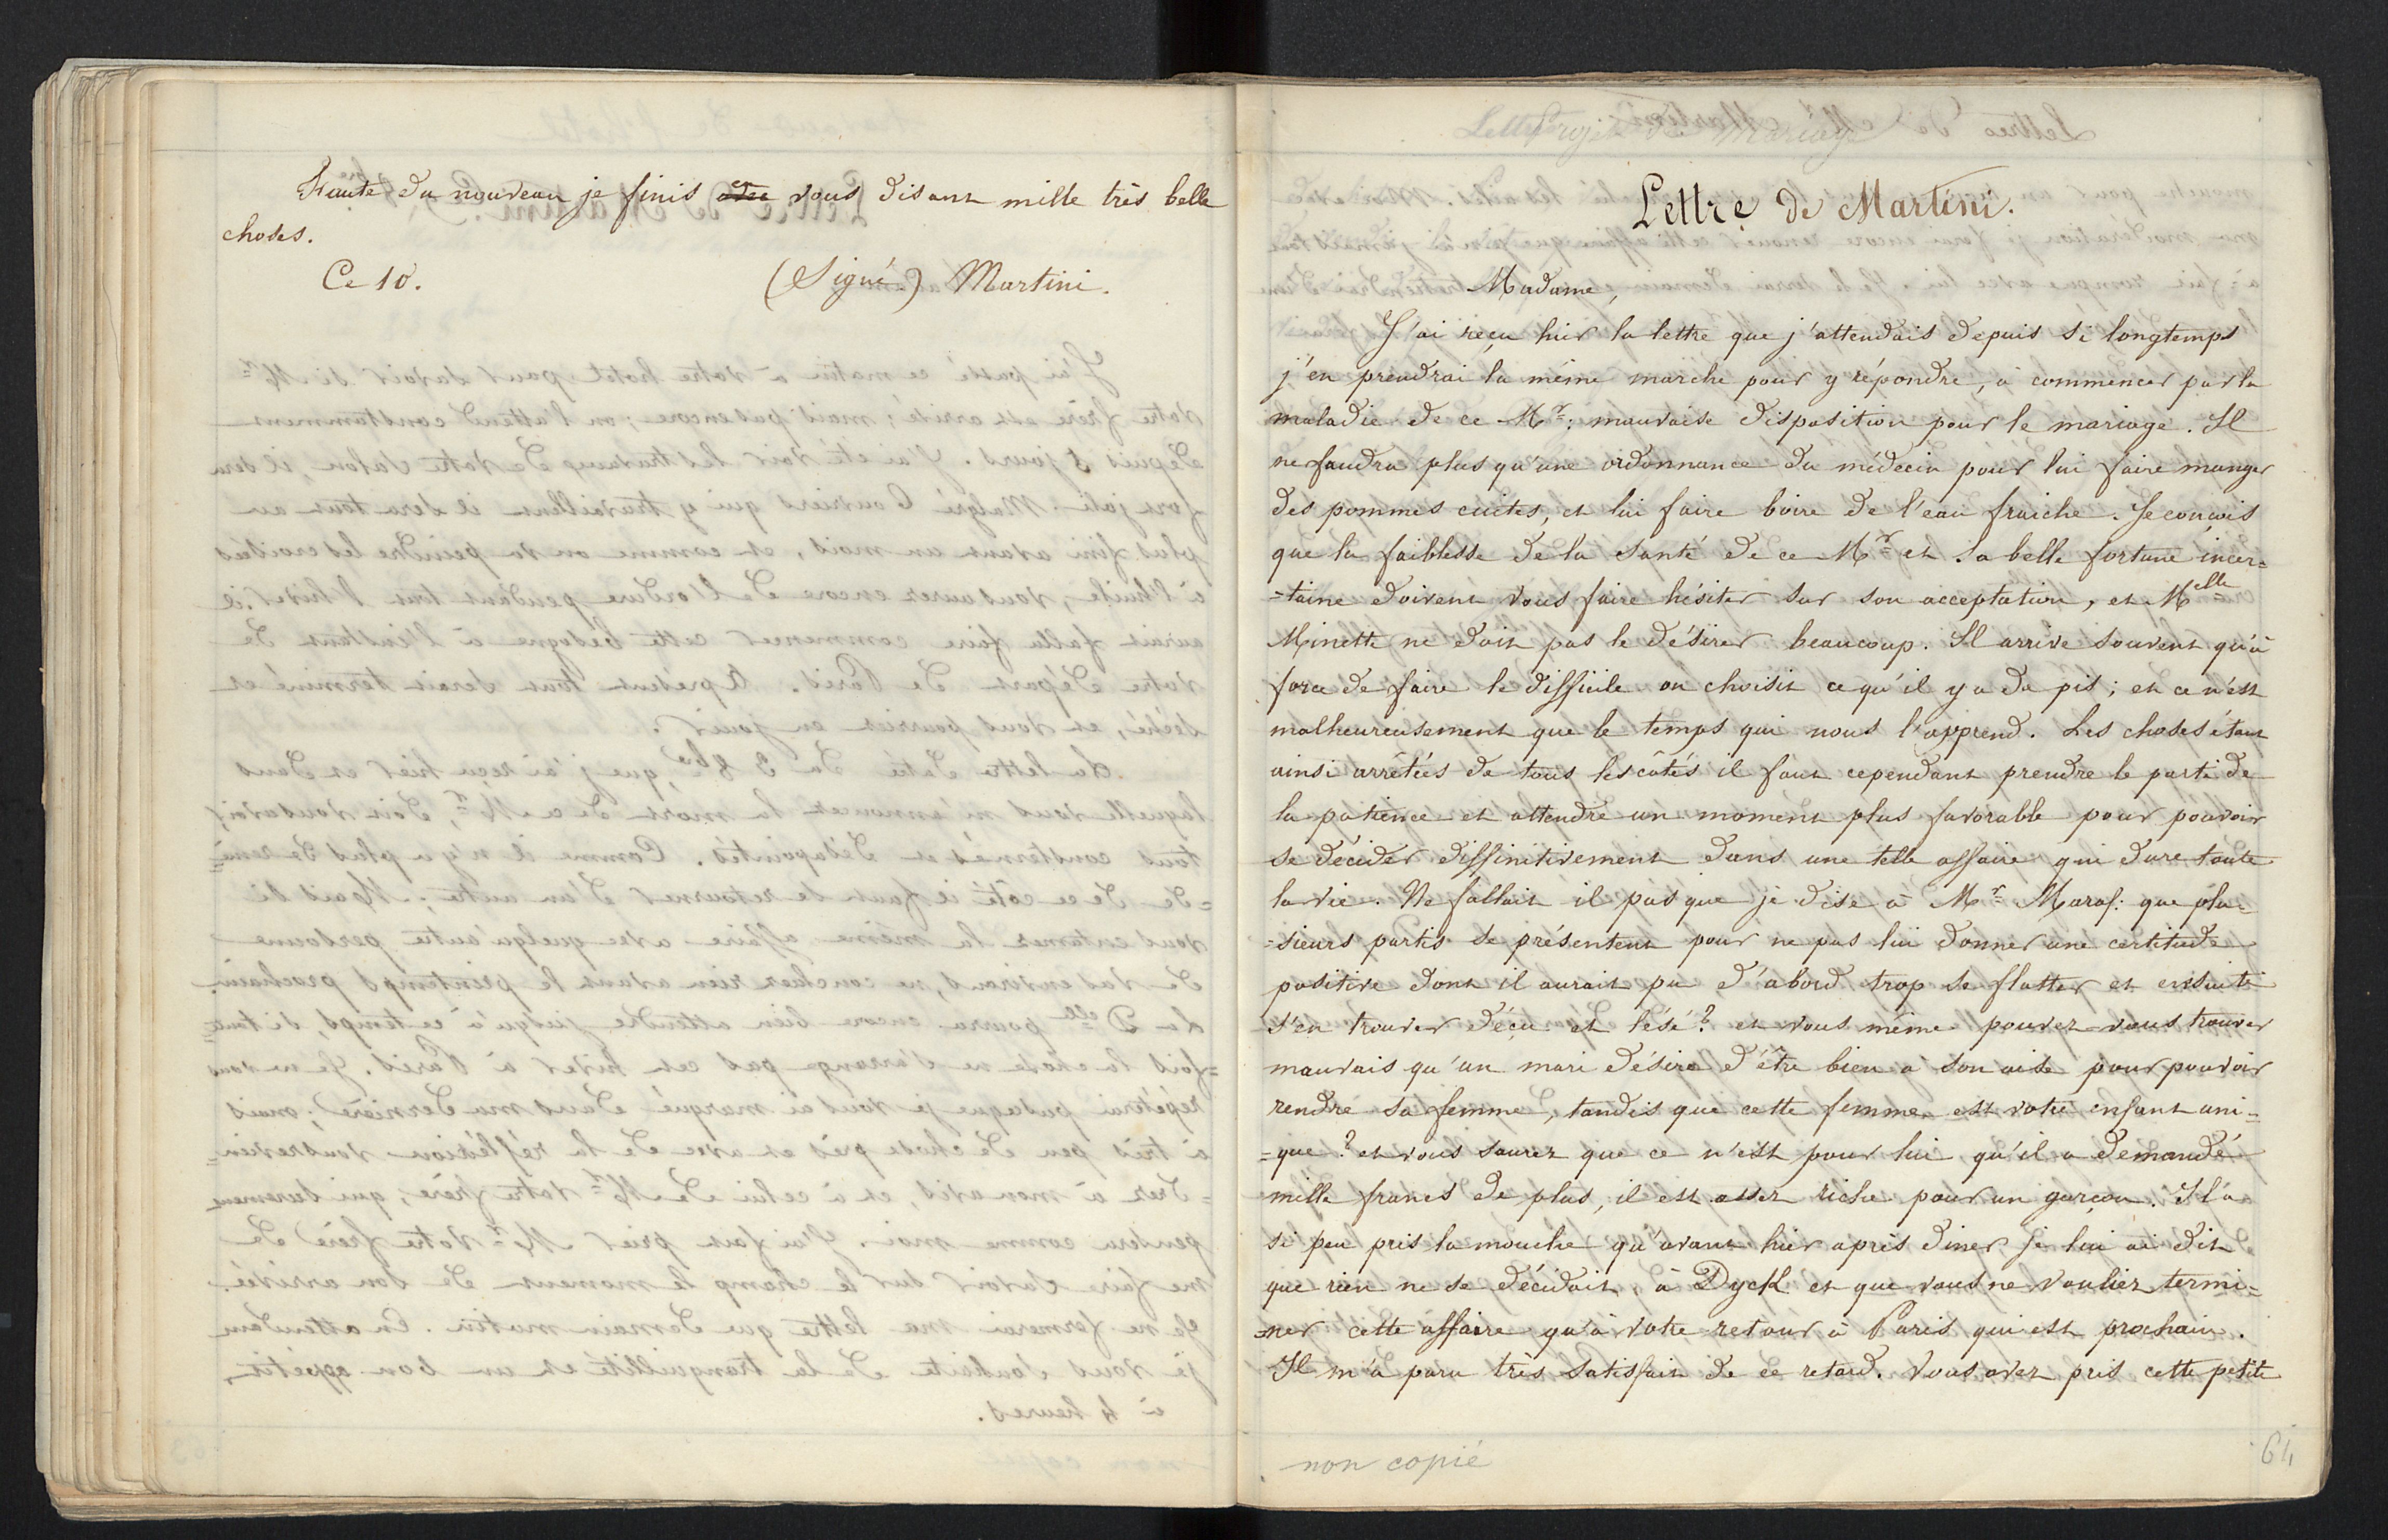 Faute du nouveau je finis avec en vous disant mille très belle
choses.
Ce 10. (Signé) Martini.
Projet de Mariage
Lettre de Martini.
Madame,
J'ai reçu hier la lettre que j'attendais depuis si longtemps
j'en prendrai la même marche pour y répondre, à commencer par la
maladie de ce Mr: mauvaise disposition pour le mariage. Il
ne faudra plus qu'une ordonnance du médecin pour lui faire manger
des pommes cuites, et lui faire boire de l'eau fraiche. Je conçois
que la faiblesse de la santé de ce Mr et sa belle fortune incer=
=taine doivent vous faire hésiter sur son acceptation, et Melle
Minette ne doit pas le désirer beaucoup. Il arrive souvent qu'à
force de faire le difficile on choisit ce qu'il y a du pis; et ce n'est
malheureusement que le temps qui nous l'apprend. Les choses étant
ainsi arrêtées de tous les côtés il faut cependant prendre le parti de
la patience et attendre un moment plus favorable pour pouvoir
se décider diffinitivement dans une telle affaire qui dure toute
la vie. Ne fallait il pas que je dise à Mr Maraf: que plu=
=sieurs partis se présentent pour ne pas lui donner une certitude
positive dont il aurait pu d'abord trop se flatter et ensuite
s'en trouver déçu et lésé? et vous même pouvez vous trouver
mauvais qu'un mari désire d'être bien a son aise pour pouvoir
rendre sa femme, tandis que cette femme est votre enfant uni=
=que? et vous saurez que ce n'est pour lui qu'il a demandé
mille francs de plus, il est assez riche pour un garçon. Il a
si peu pris la mouche qu'avant hier après diner je lui ai dit
que rien ne se décidait à Dyck et que vous ne vouliez termi=
=ner cette affaire qu'à votre retour à Paris qui est prochain.
Il m'a paru très satisfait de ce retard. Vous avez pris cette petite
non copié
64